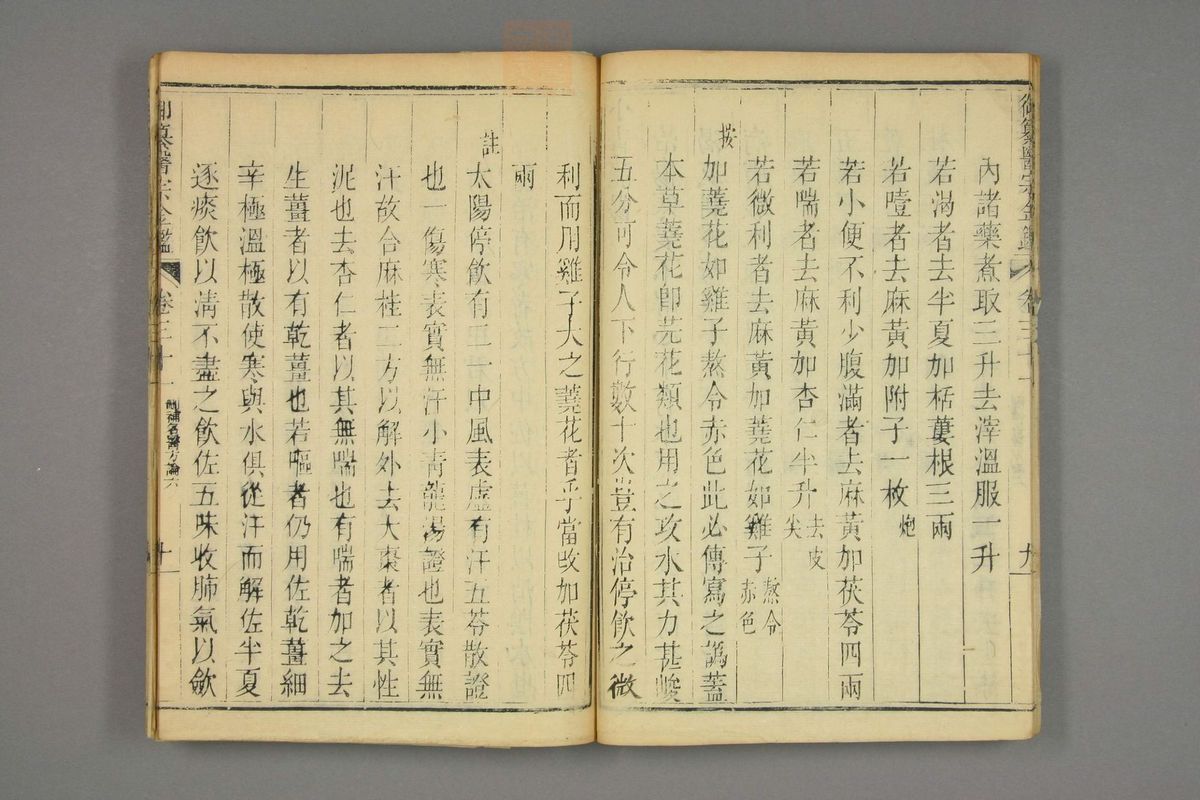 御纂醫宗金鑑 卷三十一 九
內諸藥煮取三升去滓溫服一升
若渴者去半夏加栝蔞根三兩
若噎者去麻黃加附子一枚炮
若小便不利少腹滿者去麻黃加茯苓四兩
若喘者去麻黃加杏仁半升去皮尖
若微利者去麻黃加蕘花如雞子熬令赤色
按
加蕘花如雞子熬令赤色此必傳寫之譌蓋
本草蕘花卽芫花類也用之攻水其力甚峻
五分可令人下行數十次豈有治停飮之微
利而用雞子大之蕘花者乎當改加茯苓四
兩
註
太陽停飮有二一中風表虛有汗五苓散證
也一傷寒表實無汗小靑龍湯證也表實無
汗故合麻桂二方以解外去大棗者以其性
泥也去杏仁者以其無喘也有喘者加之去
生薑者以有乾薑也若嘔者仍用佐乾薑細
辛極溫極散使寒與水俱從汗而解佐半夏
逐痰飮以淸不盡之飮佐五味收肺氣以斂
御纂醫宗金鑑 卷三十一 刪補名醫方論六